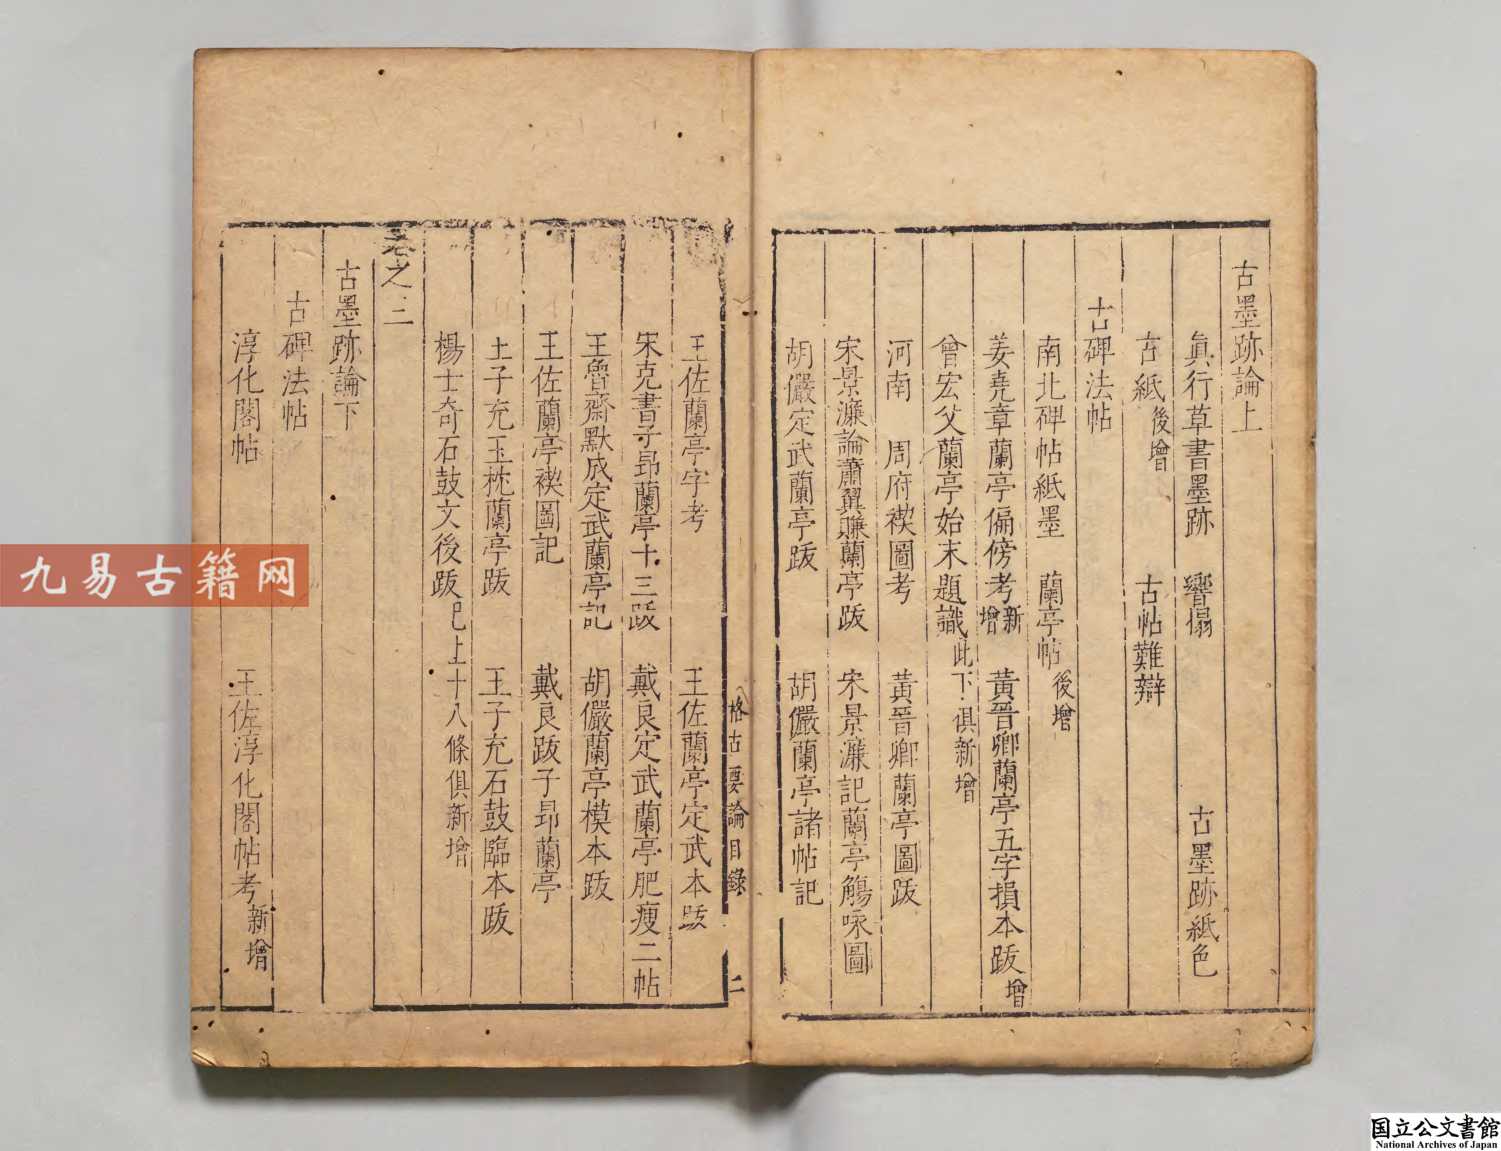 古墨跡論上
眞行草書墨跡　響搨　古墨跡紙色
古紙後增　古帖難辯
古碑法帖
南北碑帖紙墨　蘭亭帖後增
姜堯章蘭亭偏傍考新增　黃晉卿蘭亭五字損本跋增
曾宏父蘭亭始末題識此下俱新增
河南　周府禊圖考　黃晉卿蘭亭圖跋
宋景濂論蕭翼賺蘭亭跋　宋景濂記蘭亭觴咏圖
胡儼定武蘭亭跋　胡儼蘭亭諸帖記
格古要論目錄　二
王佐蘭亭字考　王佐蘭亭定武本跋
宋克書子昂蘭亭十三跋　戴良定武蘭亭肥瘦二帖
王魯齋默成定武蘭亭記　胡儼蘭亭模本跋
王佐蘭亭禊圖記　戴良跋子昂蘭亭
王子充玉枕蘭亭跋　王子充石鼓臨本跋
楊士奇石鼓文後跋已上十八條俱新增
卷之二
古墨跡論下
古碑法帖
淳化閣帖　王佐淳化閣帖考新增
九易古籍网
国立公文書館
National Archives of Japan